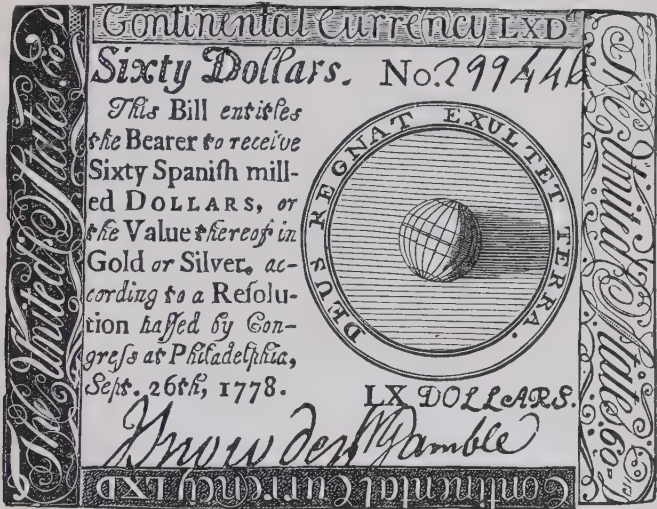 Continental Currency LXDˢ
Sixty Dollars. No. 299446
This Bill entitles
the Bearer to receive
Sixty Spaniſh mill-
ed DOLLARS, or
the Value thereof in
Gold or Silver, ac-
cording to a Reſolu-
tion paſſed by Con-
greſs at Philadelphia,
Sept. 26th, 1778.
DEUS REGNAT EXULTET TERRA.
LX DOLLARS.
Snowden Wm Gamble
The United States. 60
The United States 60
Continental Currency LXD